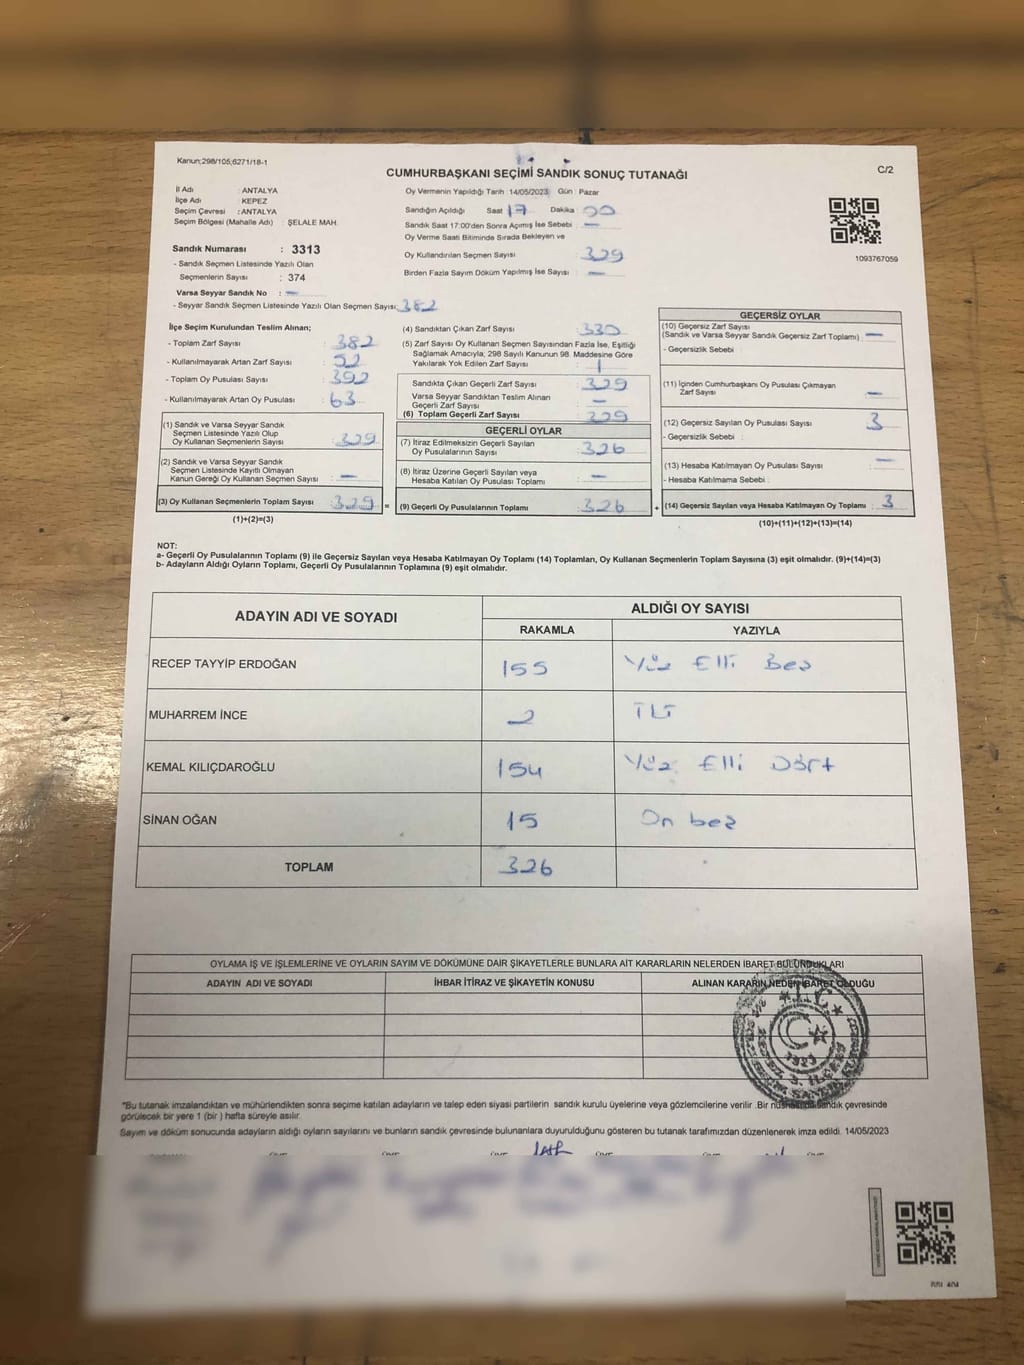 Kanun;298/105,6271/18-1
C/2
CUMHURBAŞKANI SEÇİMİ SANDIK SONUÇ TUTANAĞI
İl Adı : ANTALYA
İlçe Adı : KEPEZ
Seçim Çevresi : ANTALYA
Seçim Bölgesi (Mahalle Adı) : ŞELALE MAH.
Sandık Numarası : 3313
- Sandık Seçmen Listesinde Yazılı Olan
Seçmenlerin Sayısı : 374
Varsa Seyyar Sandık No : -
- Seyyar Sandık Seçmen Listesinde Yazılı Olan Seçmen Sayısı: 382
Oy Vermenin Yapıldığı Tarih : 14/05/2023 Gün : Pazar
Sandığın Açıldığı Saat 17 Dakika : 00
Sandık Saat 17:00'den Sonra Açımış İse Sebebi : -
Oy Verme Saati Bitiminde Sırada Bekleyen ve
Oy Kullandırılan Seçmen Sayısı : 329
Birden Fazla Sayım Döküm Yapılmış İse Sayısı : -
1093767059
İlçe Seçim Kurulundan Teslim Alınan;
- Toplam Zarf Sayısı : 382
- Kullanılmayarak Artan Zarf Sayısı : 52
- Toplam Oy Pusulası Sayısı : 392
- Kullanılmayarak Artan Oy Pusulası : 63
(1) Sandık ve Varsa Seyyar Sandık
Seçmen Listesinde Yazılı Olup
Oy Kullanan Seçmenlerin Sayısı : 329
(2) Sandık ve Varsa Seyyar Sandık
Seçmen Listesinde Kayıtlı Olmayan
Kanun Gereği Oy Kullanan Seçmen Sayısı : -
(3) Oy Kullanan Seçmenlerin Toplam Sayısı : 329 =
(1)+(2)=(3)
(4) Sandıktan Çıkan Zarf Sayısı : 330
(5) Zarf Sayısı Oy Kullanan Seçmen Sayısından Fazla İse, Eşitliği
Sağlamak Amacıyla; 298 Sayılı Kanunun 98. Maddesine Göre
Yakılarak Yok Edilen Zarf Sayısı : 1
Sandıkta Çıkan Geçerli Zarf Sayısı : 329
Varsa Seyyar Sandıktan Teslim Alınan
Geçerli Zarf Sayısı : -
(6) Toplam Geçerli Zarf Sayısı : 329
GEÇERLİ OYLAR
(7) İtiraz Edilmeksizin Geçerli Sayılan
Oy Pusulalarının Sayısı : 326
(8) İtiraz Üzerine Geçerli Sayılan veya
Hesaba Katılan Oy Pusulası Toplamı : -
(9) Geçerli Oy Pusulalarının Toplamı : 326 +
GEÇERSİZ OYLAR
(10) Geçersiz Zarf Sayısı
(Sandık ve Varsa Seyyar Sandık Geçersiz Zarf Toplamı) : -
- Geçersizlik Sebebi :
(11) İçinden Cumhurbaşkanı Oy Pusulası Çıkmayan
Zarf Sayısı : -
(12) Geçersiz Sayılan Oy Pusulası Sayısı : 3
- Geçersizlik Sebebi :
(13) Hesaba Katılmayan Oy Pusulası Sayısı : -
- Hesaba Katılmama Sebebi :
(14) Geçersiz Sayılan veya Hesaba Katılmayan Oy Toplamı : 3
(10)+(11)+(12)+(13)=(14)
NOT:
a- Geçerli Oy Pusulalarının Toplamı (9) ile Geçersiz Sayılan veya Hesaba Katılmayan Oy Toplamı (14) Toplamları, Oy Kullanan Seçmenlerin Toplam Sayısına (3) eşit olmalıdır. (9)+(14)=(3)
b- Adayların Aldığı Oyların Toplamı, Geçerli Oy Pusulalarının Toplamına (9) eşit olmalıdır.
ADAYIN ADI VE SOYADI
ALDIĞI OY SAYISI
RAKAMLA YAZIYLA
RECEP TAYYİP ERDOĞAN 155 Yüz Elli Beş
MUHARREM İNCE 2
KEMAL KILIÇDAROĞLU 154 Yüz Elli Dört
SİNAN OĞAN 15 On beş
TOPLAM 326
OYLAMA İŞ VE İŞLEMLERİNE VE OYLARIN SAYIM VE DÖKÜMÜNE DAİR ŞİKAYETLERLE BUNLARA AİT KARARLARIN NELERDEN İBARET BULUNDUKLARI
ADAYIN ADI VE SOYADI İHBAR İTİRAZ VE ŞİKAYETİN KONUSU ALINAN KARARIN NEDEN İBARET OLDUĞU
T.C.
1923
*Bu tutanak imzalandıktan ve mühürlendikten sonra seçime katılan adayların ve talep eden siyasi partilerin sandık kurulu üyelerine veya gözlemcilerine verilir .Bir nüshasıda sandık çevresinde
görülecek bir yere 1 (bir ) hafta süreyle asılır.
Sayım ve döküm sonucunda adayların aldığı oyların sayılarını ve bunların sandık çevresinde bulunanlara duyurulduğunu gösteren bu tutanak tarafımızdan düzenlenerek imza edildi. 14/05/2023